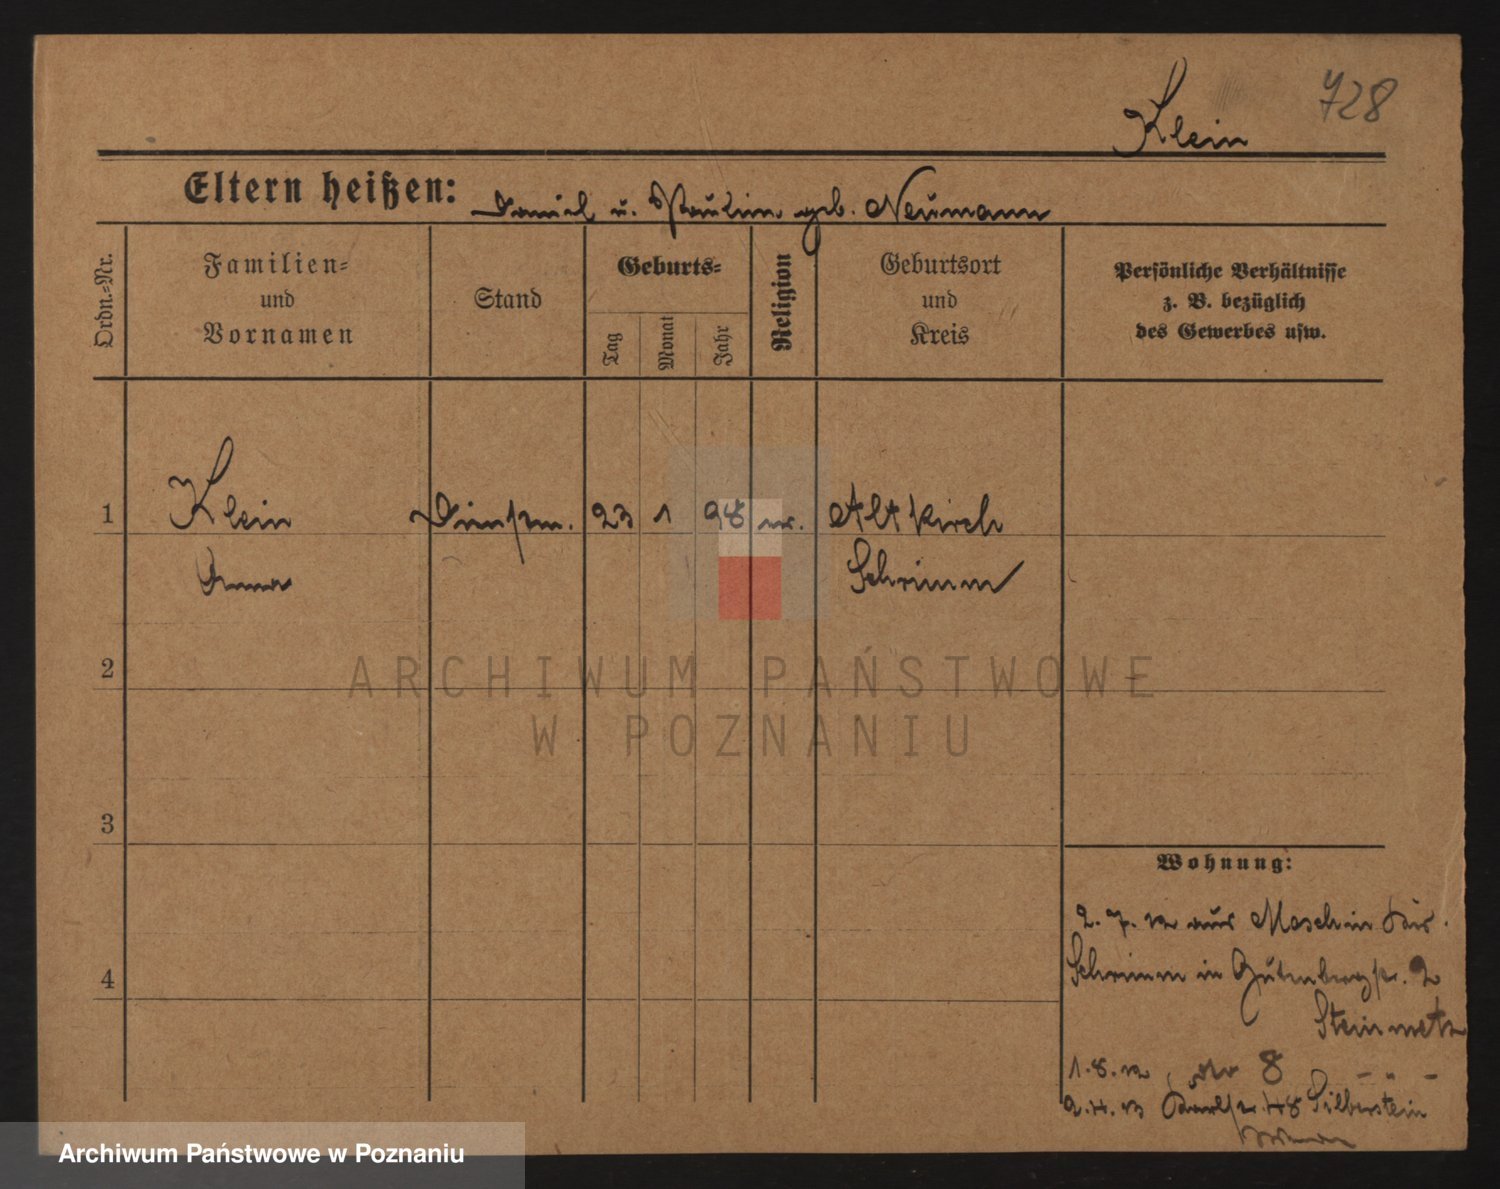 728
Klein
Eltern heißen: Daniel u. Paulina geb. Neumann
Ordn.-Nr.
Familien-
und
Vornamen
Stand
Geburts-
Tag
Monat
Jahr
Religion
Geburtsort
und
Kreis
Persönliche Verhältnisse
z. B. bezüglich
des Gewerbes usw.
1 Klein Dienstm. 23 1 98 ev. Altkirch
Anna Schrimm
2
3
4
ARCHIWUM PAŃSTWOWE
W POZNANIU
Wohnung:
2.7.12 aus Moschin Kr.
Schrimm in Gutenbergstr. 2
Steinmetz
1.8.12 8 - " -
2.4.13 Karlstr. 48 Silberstein
Archiwum Państwowe w Poznaniu